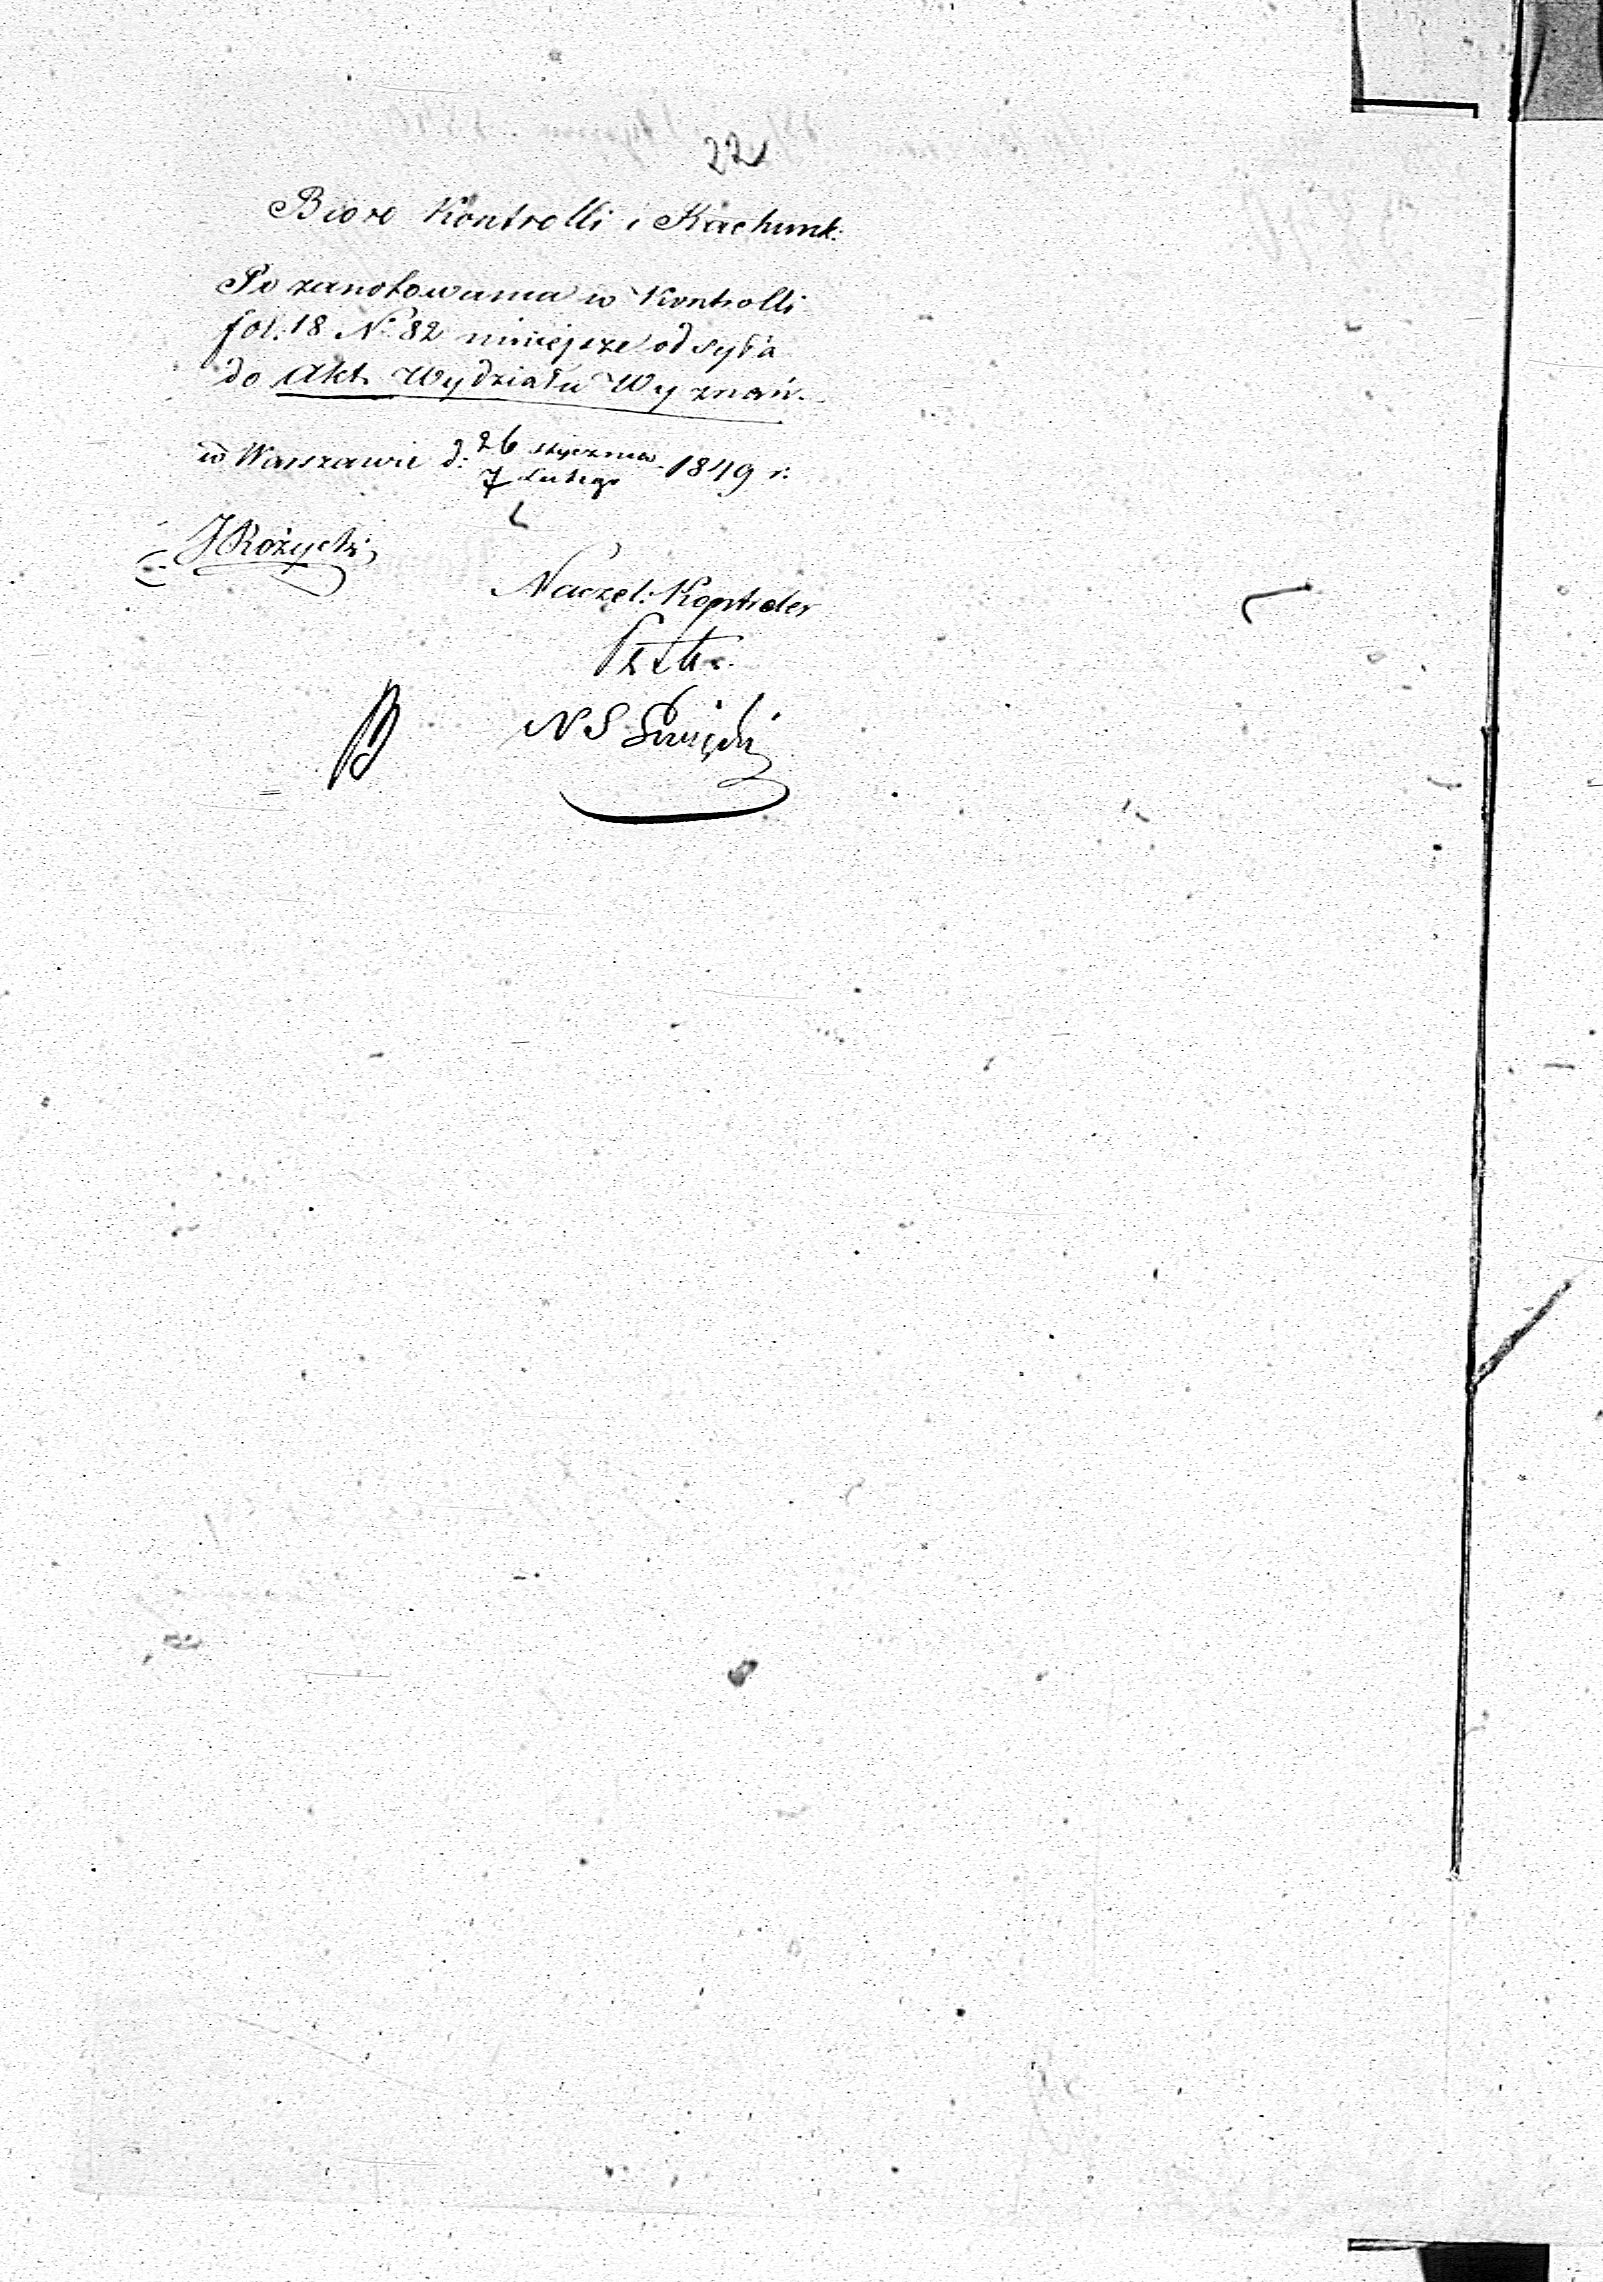 22
Bioro Kontrolli i Rachunk:
Po zanotowaniu w Kontrolli
fol: 18 N. 82 niniejsze odsyła
do Akt Wydziału Wyznań.
w Warszawie d: 26 stycznia
7 Lutego 1849 r.
J Rożycki
Naczel: Kontroler
N S